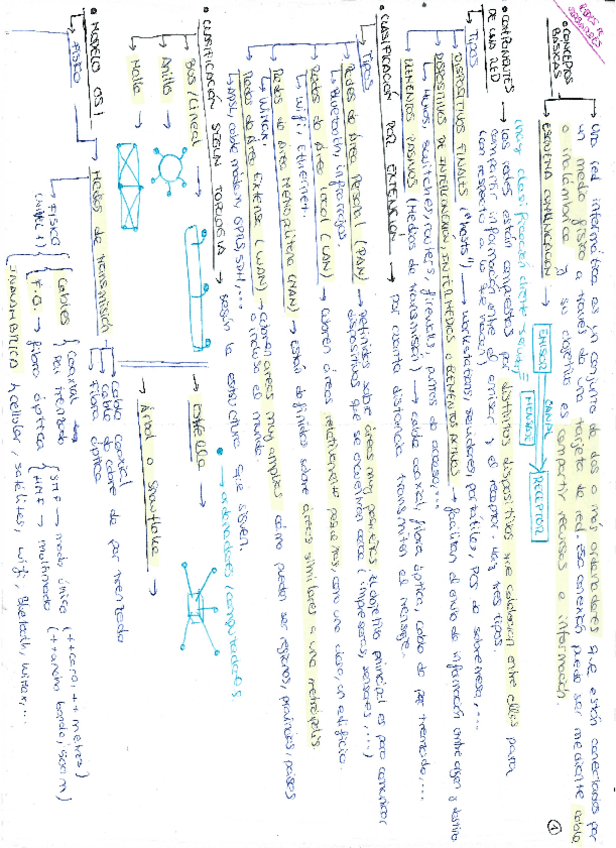 REDES DE ORDENADORES
• CONCEPTOS BÁSICOS
Una red informática es un conjunto de dos o más ordenadores que están conectados por
un medio físico a través de una tarjeta de red. Esa conexión puede ser mediante cable
o inalámbrica y su objetivo es compartir recursos e información.
ESQUEMA COMUNICACIÓN →
EMISOR
CANAL
MENSAJE
RECEPTOR
clasificación cliente servidor
• COMPONENTES DE UNA RED → Las redes están compuestas por distintos dispositivos que colaboran entre ellos para
compartir información entre el emisor y el receptor. Hay tres tipos.
(con respecto a lo que hacen)
Tipos
DISPOSITIVOS FINALES ("hosts") → workstations, servidores, portátiles, PCs de sobremesa, ...
DISPOSITIVOS DE INTERCONEXIÓN, INTERMEDIOS o ELEMENTOS ACTIVOS → facilitan el envío de información entre origen y destino
↳ Hubs, switches, routers, firewalls, puntos de acceso, ...
ELEMENTOS PASIVOS (Medios de transmisión) → cable coaxial, fibra óptica, cable de par trenzado, ...
• CLASIFICACIÓN POR EXTENSIÓN → por cuanta distancia transmiten el mensaje.
Tipos
Redes de Área Personal (PAN) → Definidas sobre áreas muy pequeñas. El objetivo principal es para comunicar
dispositivos que se encuentran cerca (impresoras, sensores, ...)
↳ Bluetooth, infrarrojos.
Redes de Área Local (LAN) → Cubren áreas relativamente pequeñas, como una clase, un edificio.
↳ Wifi, Ethernet.
Redes de Área Metropolitana (MAN) → están definidas sobre áreas similares a una metrópolis.
↳ WiMax.
Redes de Área Extensa (WAN) → cubren áreas muy amplias como pueden ser regiones, provincias, países
o incluso el mundo.
↳ ADSL, cable módem, GPRS, SDH, ...
• CLASIFICACIÓN SEGÚN TOPOLOGÍA → según la estructura que siguen.
• ordenadores/computadores
Bus/Lineal →
Estrella →
Anillo →
Malla →
Árbol o Snowflake →
• MODELO OSI
FÍSICO → Medios de transmisión
Cable coaxial
Cable de cobre de par trenzado
Fibra óptica
FÍSICO (NIVEL 1)
Cables
Coaxial
Par trenzado
F.O. → fibra óptica
SMF → modo único (++cara, ++ metros)
MMF → multimodo (++ancho banda, 500m)
INALÁMBRICO
↳ celular, satélites, wifi, Bluetooth, wimax, ...
1